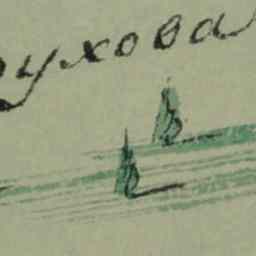 рухова